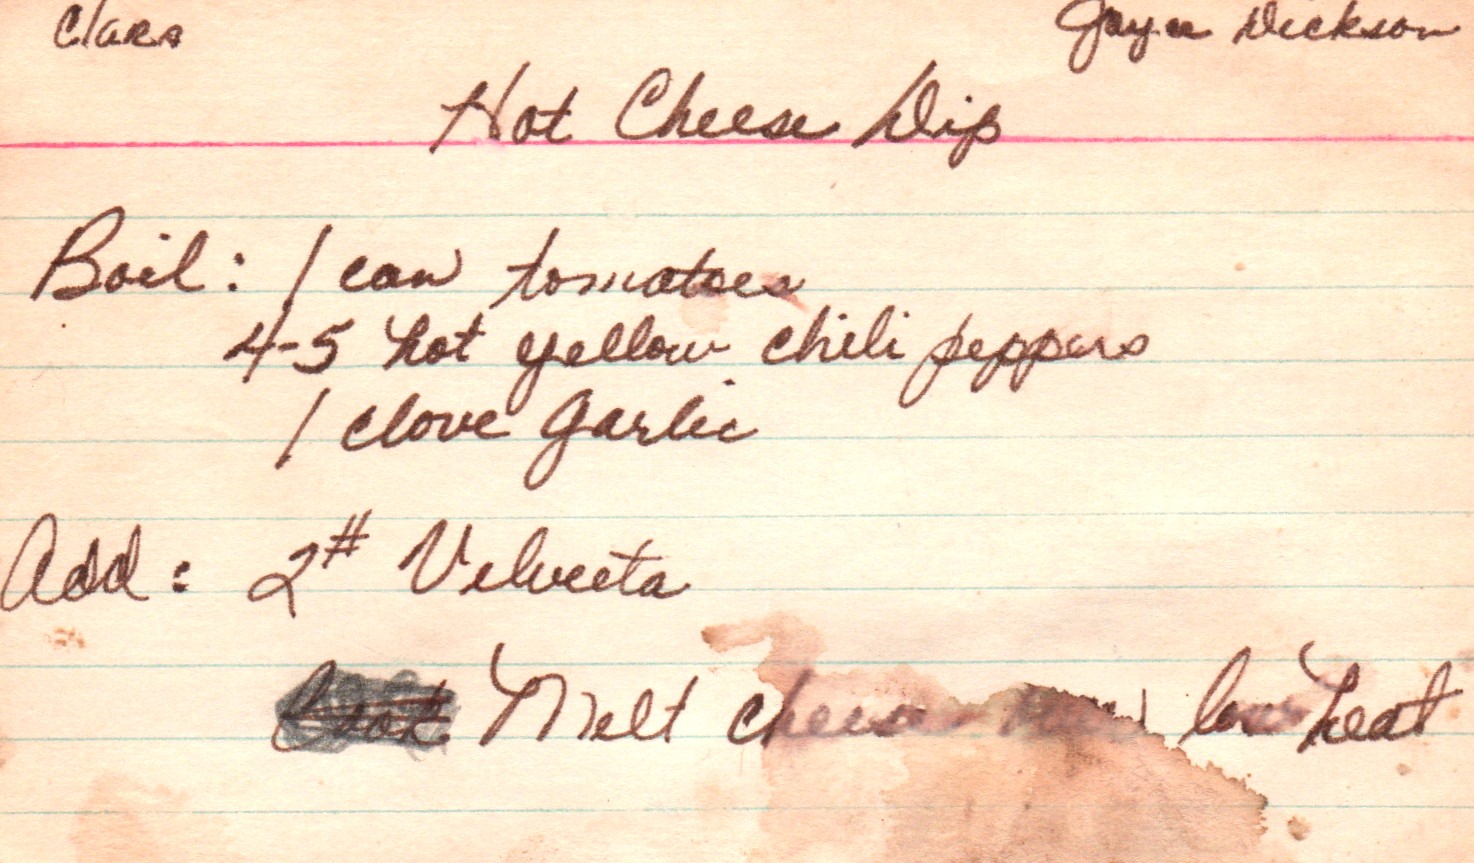 Clara
Joyce Dickson
Hot Cheese Dip
Boil: 1 can tomatoes
4-5 hot yellow chili peppers
1 clove garlic
Add: 2# Velveeta
Melt cheese low heat